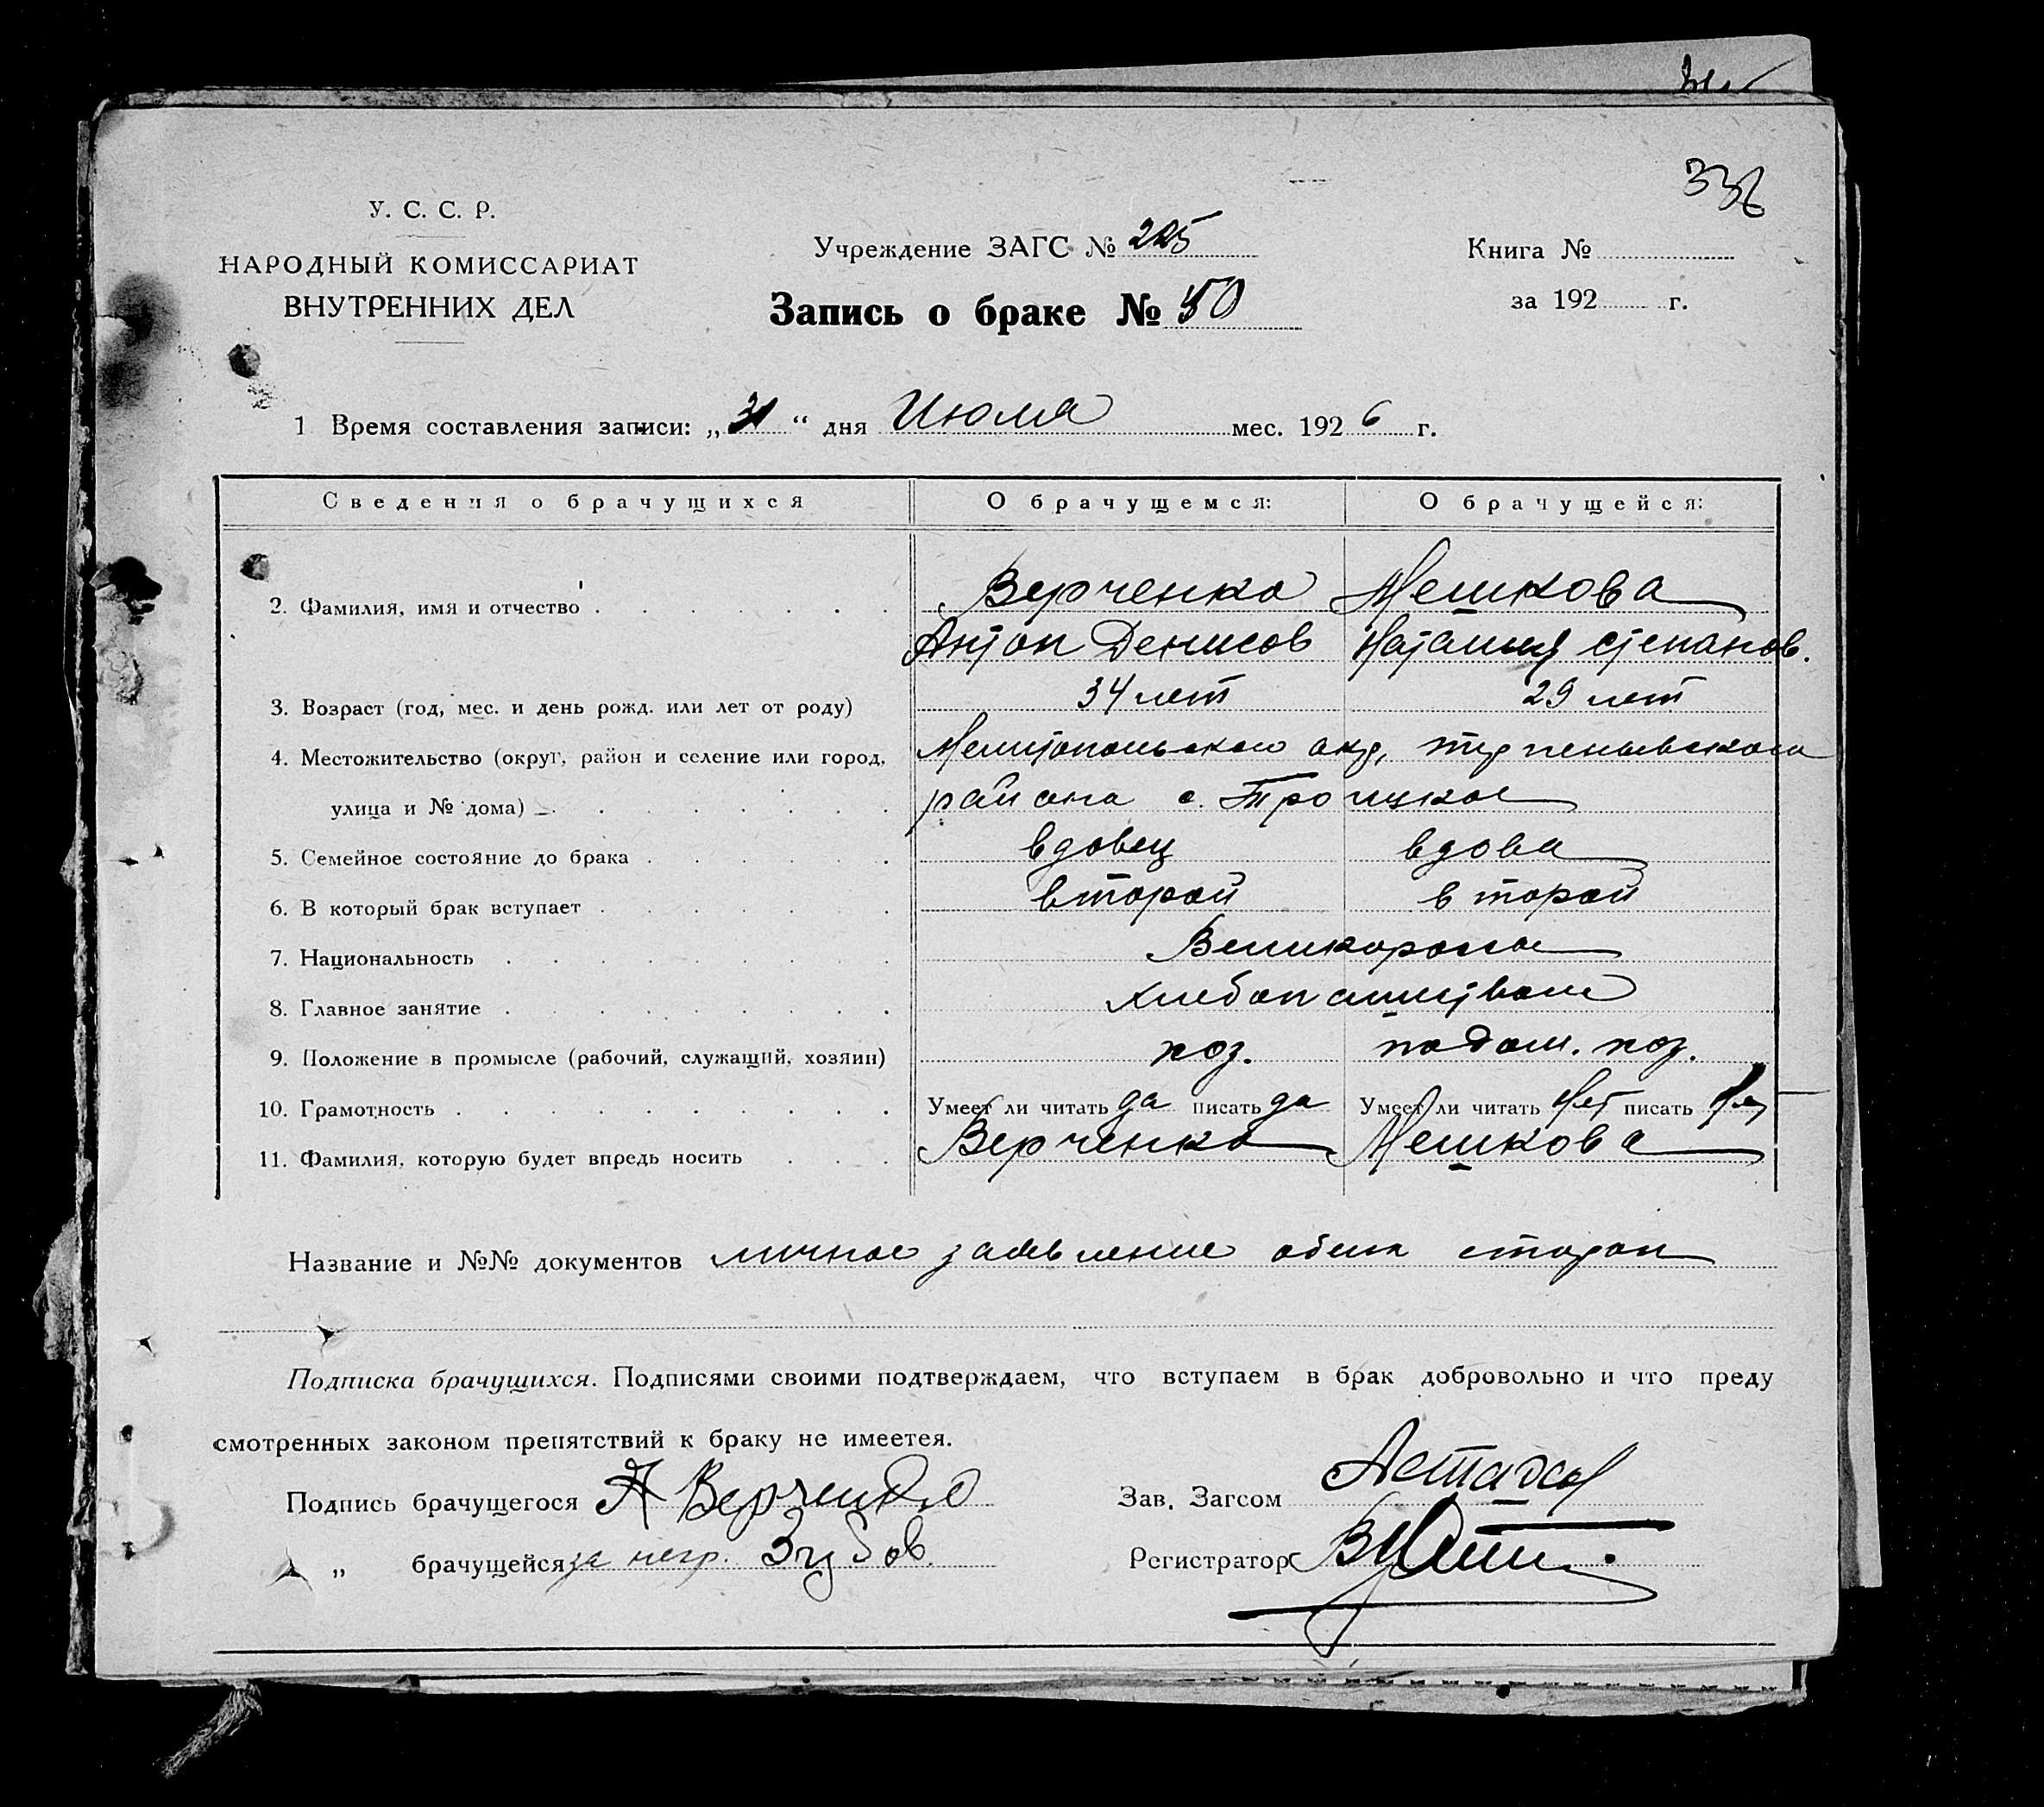 336
У. С. С. Р.
НАРОДНЫЙ КОМИССАРИАТ
ВНУТРЕННИХ ДЕЛ
Учреждение ЗАГС № 225
Запись о браке № 50
Книга №
за 192 г.
1 Время составления записи: „31“ дня Июля мес. 1926 г.
Сведения о брачущихся О брачущемся: О брачущейся:
2. Фамилия, имя и отчество Верченко Мешкова
Антон Денисов Наталия Степанов.
3. Возраст (год, мес. и день рожд. или лет от роду) 34 лет 29 лет
4. Местожительство (округ, район и селение или город, Мелитопольского окр,
улица и № дома) района с. Троицкое
5. Семейное состояние до брака вдовец вдова
6. В который брак вступает второй второй
7. Национальность Великоросы
8. Главное занятие
9. Положение в промысле (рабочий, служащий, хозяин) хоз. под. хоз.
10. Грамотность Умеет ли читать да писать да Умеет ли читать нет писать нет
11. Фамилия, которую будет впредь носить Верченко Мешкова
Название и №№ документов личное заявление обеих сторон
Подписка брачущихся. Подписями своими подтверждаем, что вступаем в брак добровольно и что преду
смотренных законом препятствий к браку не имеетея.
Подпись брачущегося А Верченко
Зав. Загсом
„ брачущейся за негр. Зубов
Регистратор